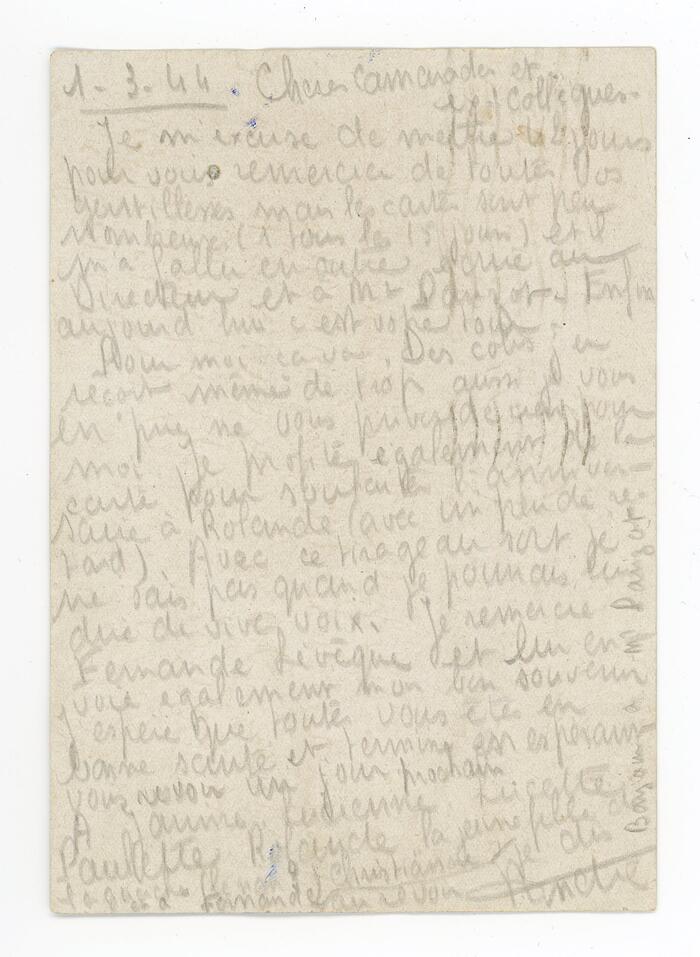 1-3-44. Cheres Camarades et
ex/Collègues.
Je m'excuse de mettre jours
pour vous remercier de toutes vos
gentillesses mais les cartes sont peu
nombreuses (1 tous les 15 jours) et il
m'a fallu en outre écrire au
Directeur et à Mr Danzot. Enfin
aujourd'hui c'est votre tour.
Pour moi ça va. Des colis, en
reçoit même de trop aussi je vous
en prie, ne vous privez de rien pour
moi. Je profite également de la
carte pour souhaiter l'anniver-
saire à Rolande (avec un peu de re-
tard). Avec ce tirage au sort je
ne sais pas quand je pourrais lui
dire de vive voix. Je remercie
Fernande Levêque et lui en-
voie également mon bon souvenir
J'espère que toutes vous êtes en
bonne santé et termine en espérant
vous revoir un jour prochain
A Jeanne, Lucienne, Lucette,
Paulette, Rolande la jeune fille de
la Christiane je dis
et à Fernande au revoir
Bonjour à Mr Danzot